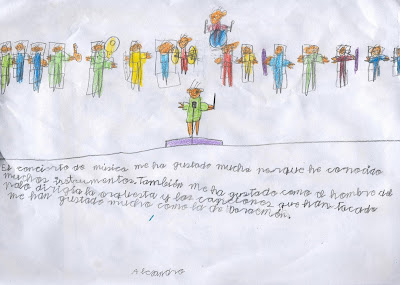 El concierto de música me ha gustado mucho porque he conocido
muchos instrumentos. También me ha gustado como el hombre del
palo dirigía la orquesta y las canciones que han tocado
me han gustado mucho como la de Doraemon.
Alejandro